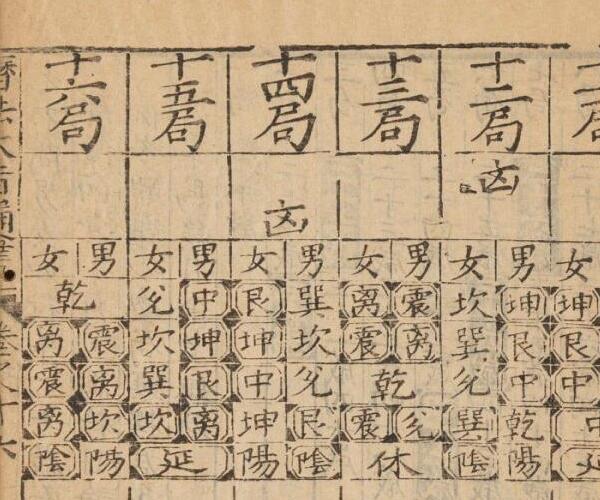 十二局
㐫
男坤艮中乾陽
女坎巽兊巽陰
十三局
男震离乾兊休
女离震震
十四局
㐫
男巽坎兊艮陰
女艮坤中坤陽
十五局
男中坤艮离延
女兊坎巽坎
十六局
男乾震离坎陽
女离震离陰
女坤艮中